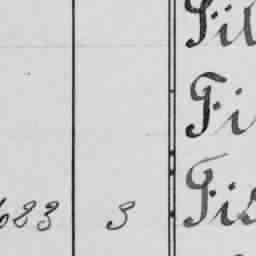 Fil
Fi
683 3 Fis